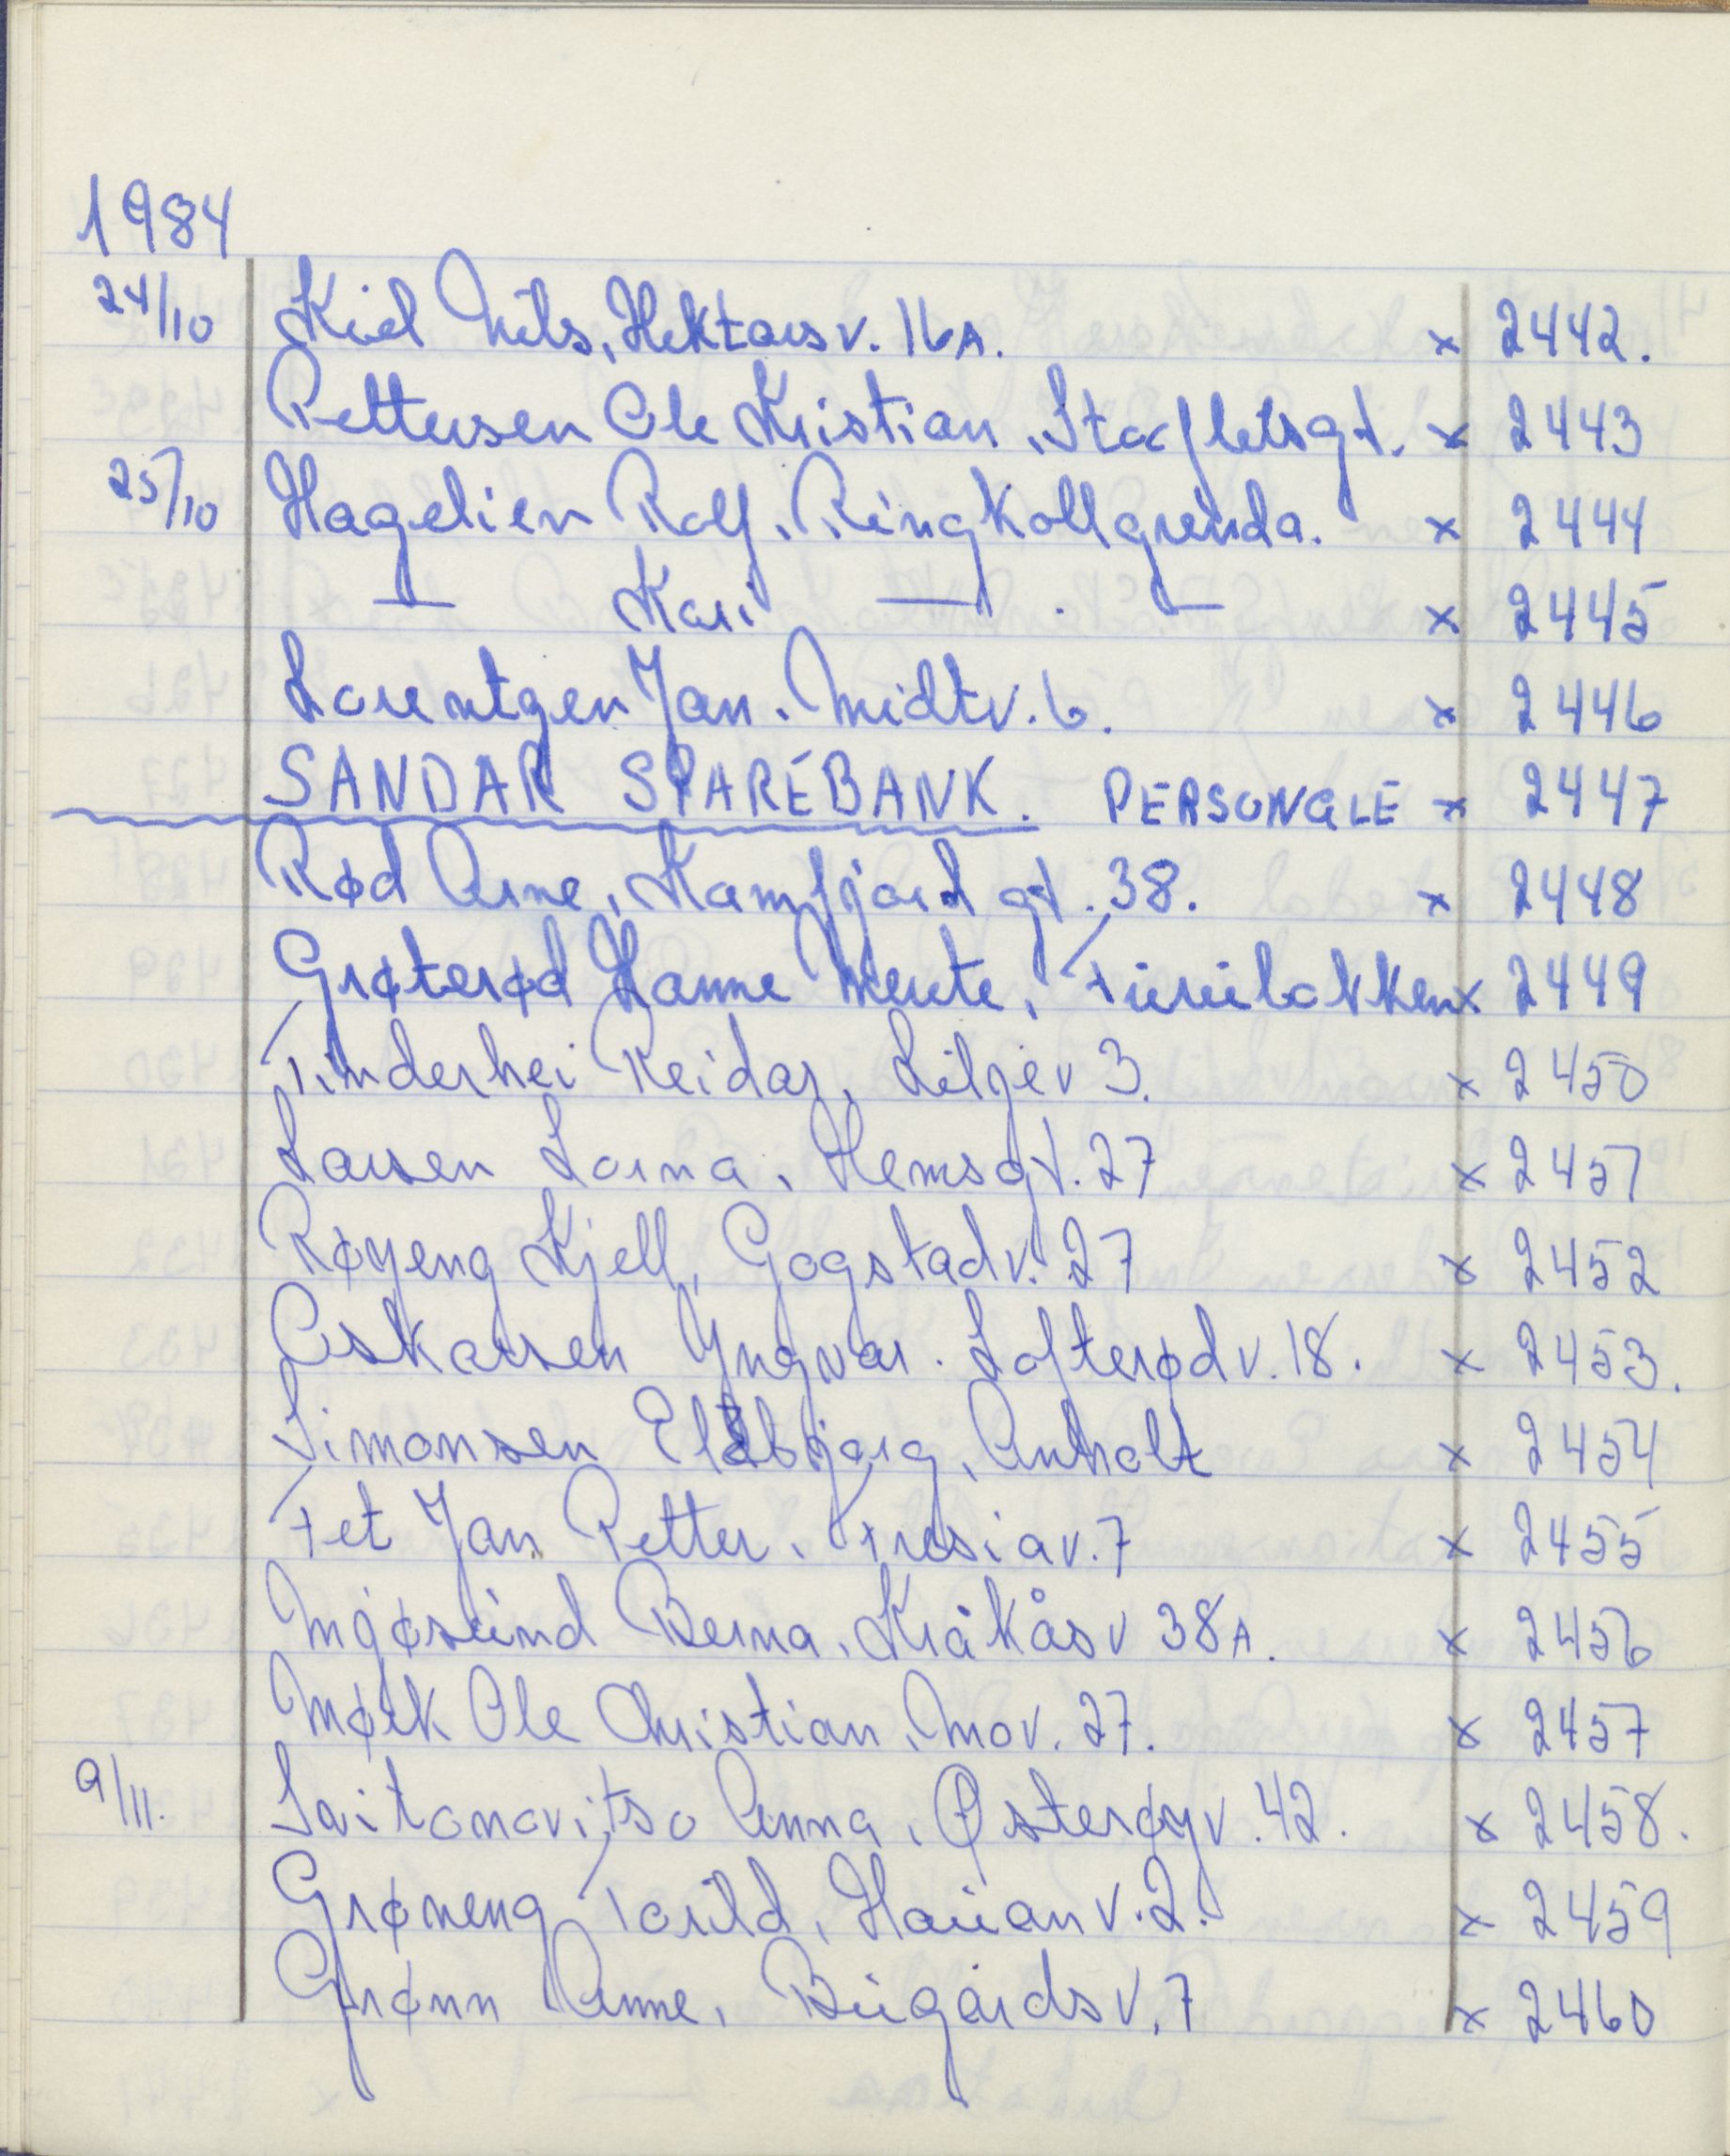 1984
24/10 Kiel Nils, Hektars v. 16A. x 2442.
Pettersen Ole Kristian, Stafletsgt. x 2443
25/10 Hagelien Rolf, Ringkollgrenda. x 2444
— Kari — . — x 2445
Lorentzen Jan. Midtv. 6. x 2446
SANDAR SPAREBANK. PERSONALE x 2447
Rød Arne, Kamfjord gt. 38. x 2448
Grøterød Hanne Merete, Furulokken x 2449
Tinderhei Reidar, Liljev 3. x 2450
Larsen Lorna, Hemsgt. 27 x 2451
Røyeng Kjell, Gogstadv. 27 x 2452
Oskarsen Yngvar. Lofterødv. 18. x 2453.
Simonsen Eldbjørg, Anholt x 2454
Fet Jan Petter. Fresiav. 7 x 2455
Mjøsund Berna, Kråkåsv 38A. x 2456
Mørk Ole Christian, Mov. 27. x 2457
9/11. Anna, Østerøyv. 42. x 2458.
Grøneng Torild, Hauanv. 2. x 2459
Grønn Anne, Bugårdsv. 7 x 2460